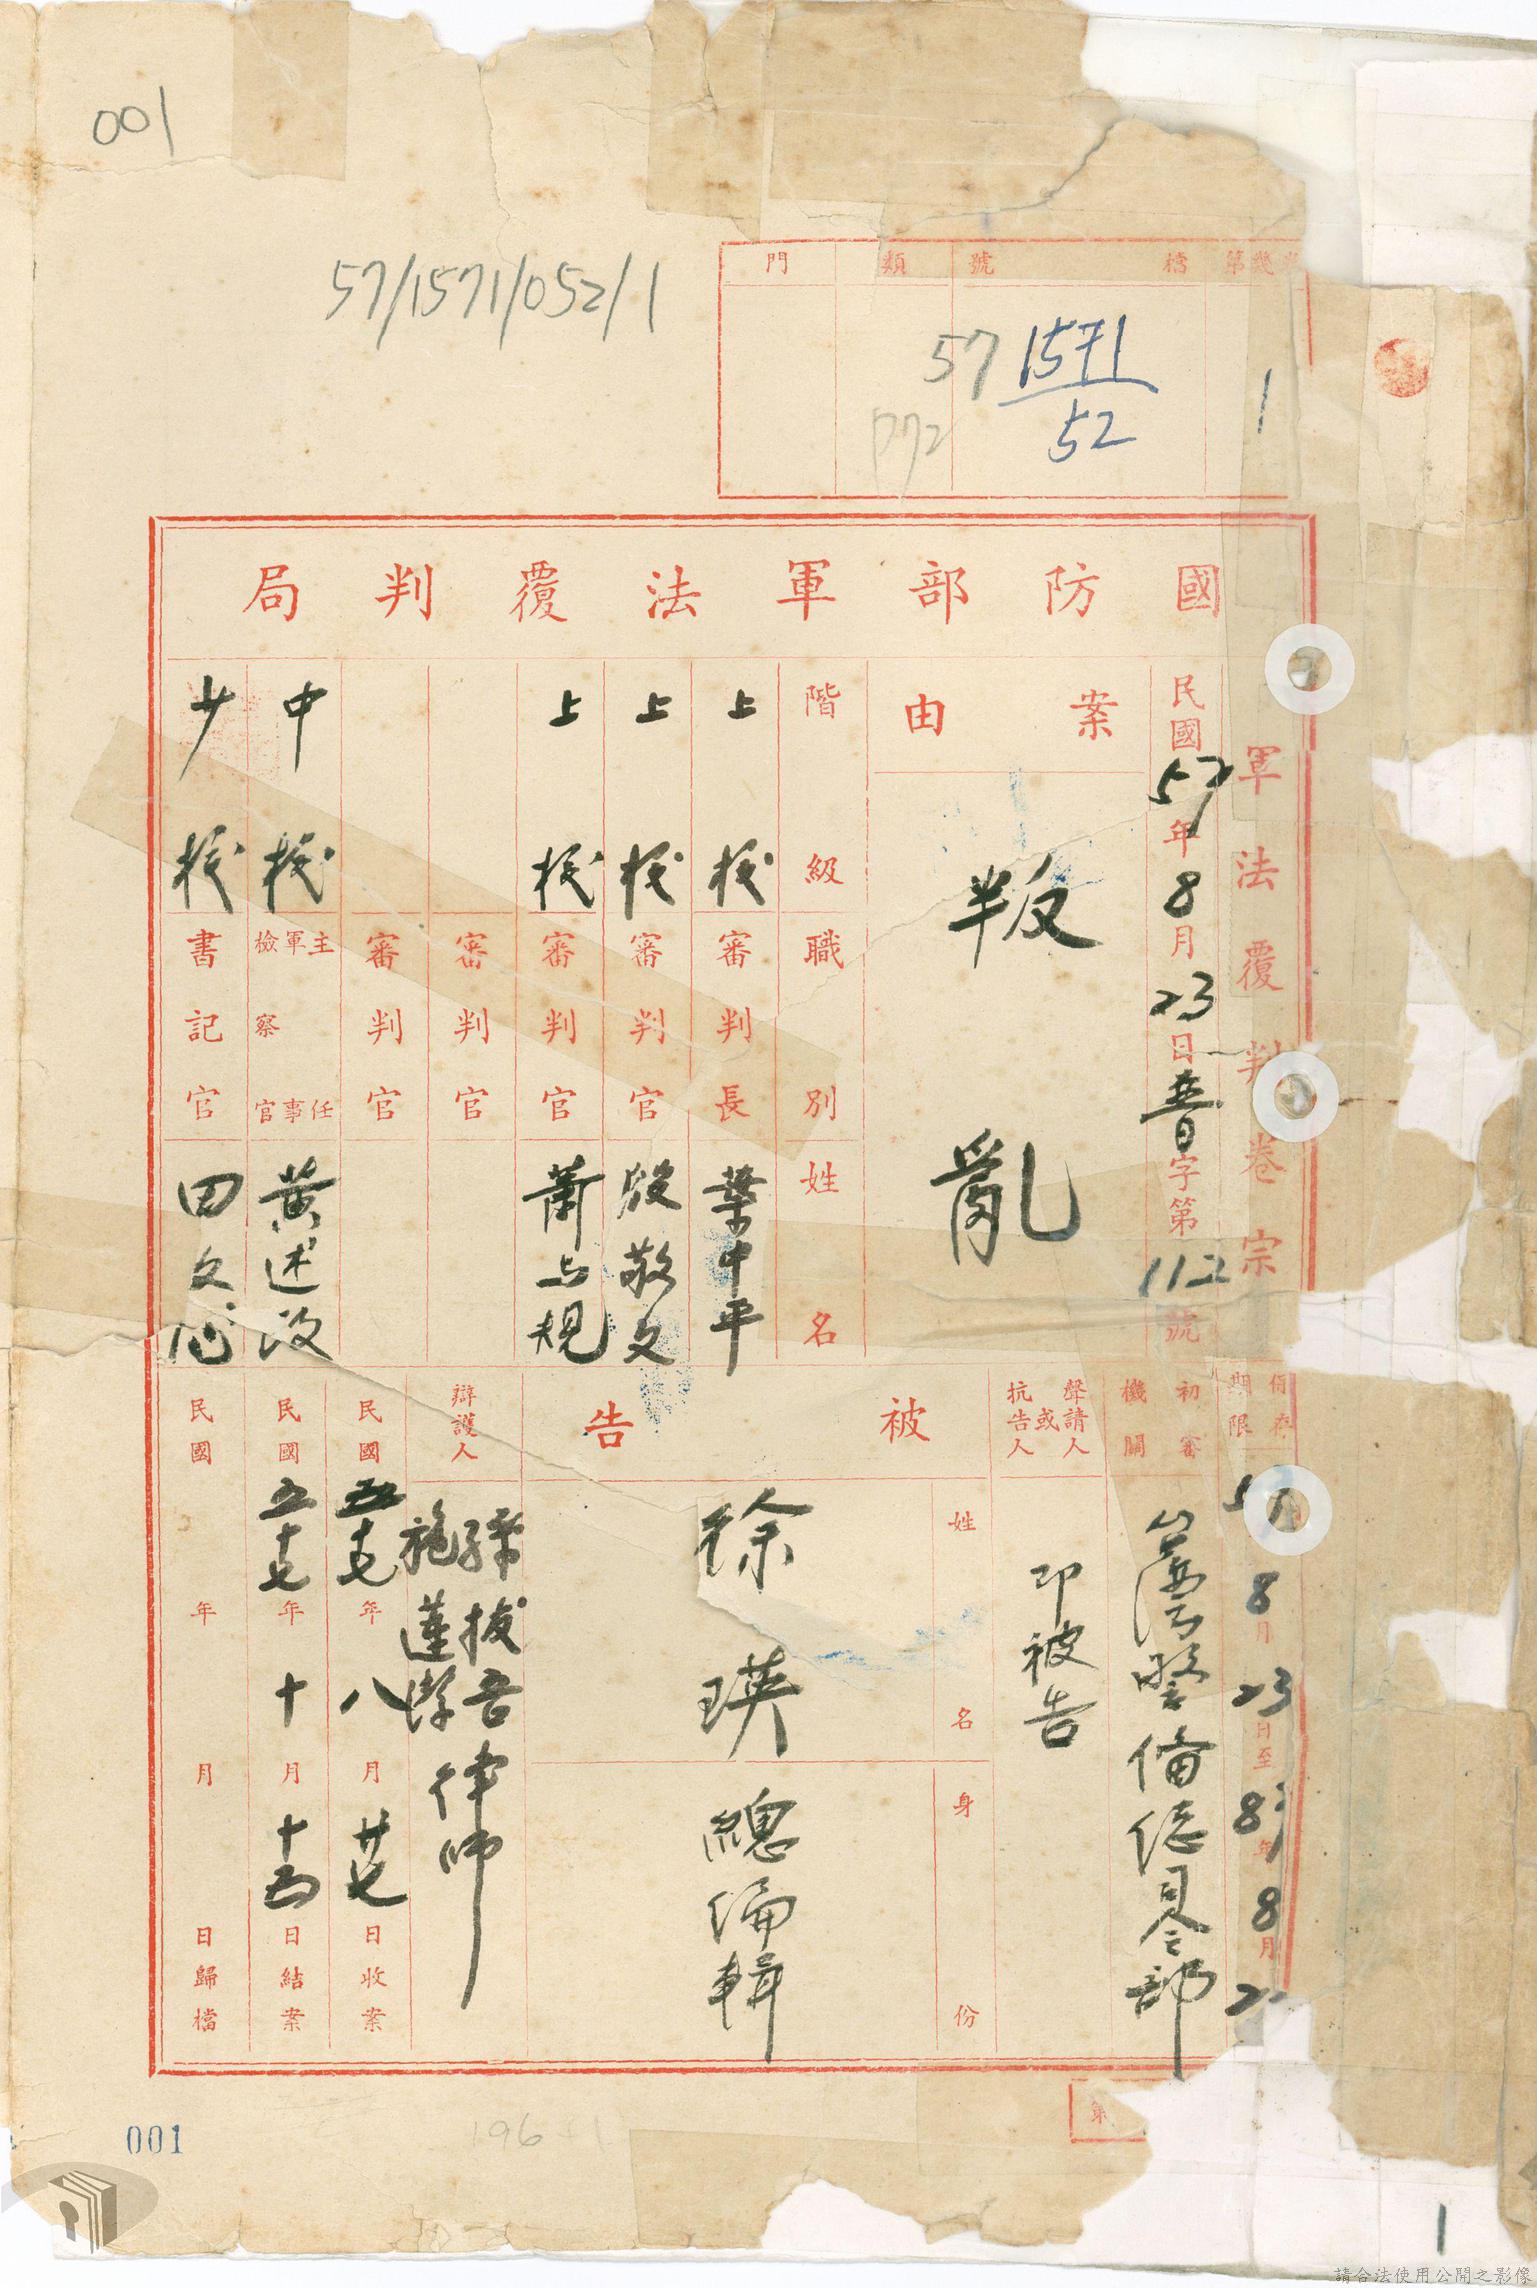 001
57/1571/052/1
門 類 號 檔 第幾
57 1571
52
1
國防部軍法覆判局
軍法覆判卷宗
民國57年8月23日普字第112號
案由
叛亂
階級 職別 姓名
上校 審判長 葉中平
上校 審判官 殷敬文
上校 審判官 蕭与規
審判官
審判官
中校 主任軍事檢察官 黃述
少校 書記官 田文
保存期限
57 8月23日至8 年8月2
初審機關
臺灣警備總司令部
聲請人或抗告人
即被告
被告
姓名 徐瑛
身份 總編輯
辯護人
梁拔吾
施 律師
民國五十七年八月廿七日收案
民國五十七年十月十五日結案
民國 年 月 日歸檔
第
001
1
請合法使用公開之影像